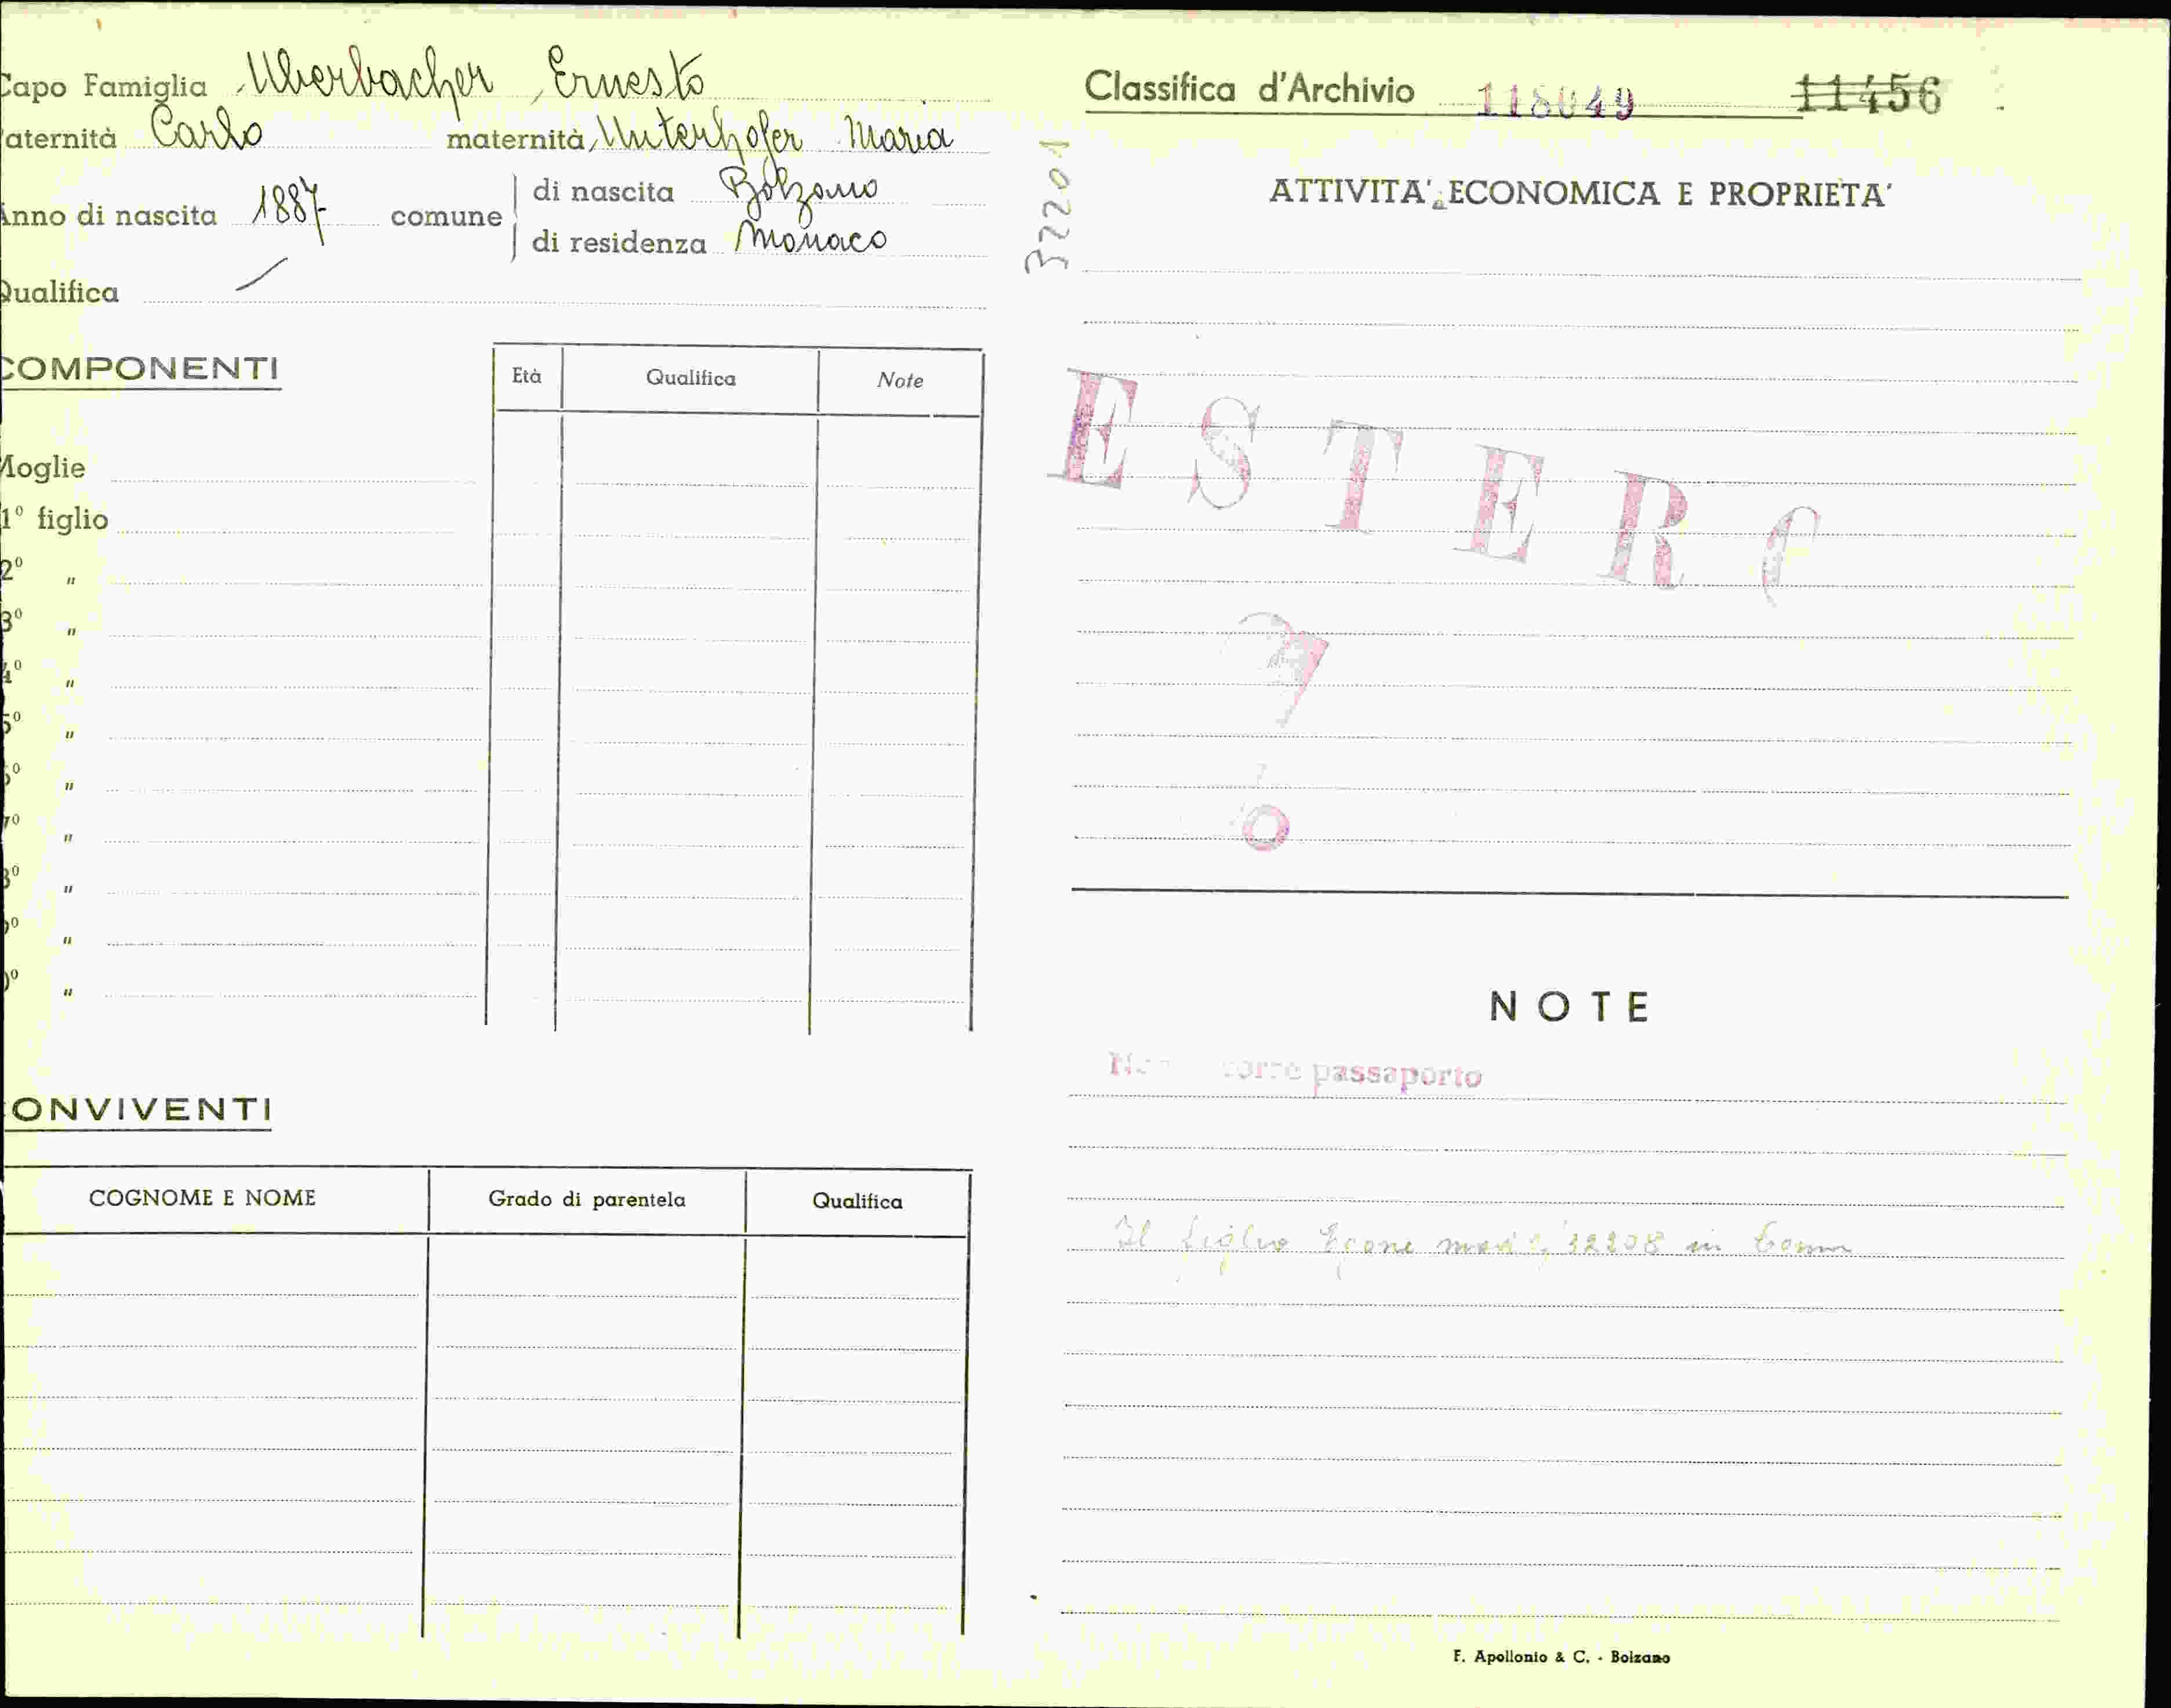 Capo Famiglia Uberbacher Ernesto
Paternità Carlo maternità Unterhofer Maria
Anno di nascita 1887 comune di nascita Bolzano
di residenza Monaco
Qualifica
COMPONENTI
Età Qualifica Note
Moglie
1º figlio
2º "
3º "
4º "
5º "
6º "
7º "
8º "
9º "
0º "
CONVIVENTI
COGNOME E NOME Grado di parentela Qualifica
Classifica d'Archivio 118049 11456
32201
ATTIVITA' ECONOMICA E PROPRIETA'
ESTERO
NOTE
passaporto
Il figlio 32208 in
F. Apollonio & C. - Bolzano